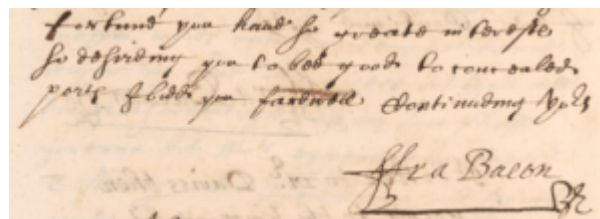 fortune you haue so greate interesse
so desireing you to bee good to concealed
poets I bidd you farewell Continuing yors
ffra Bacon